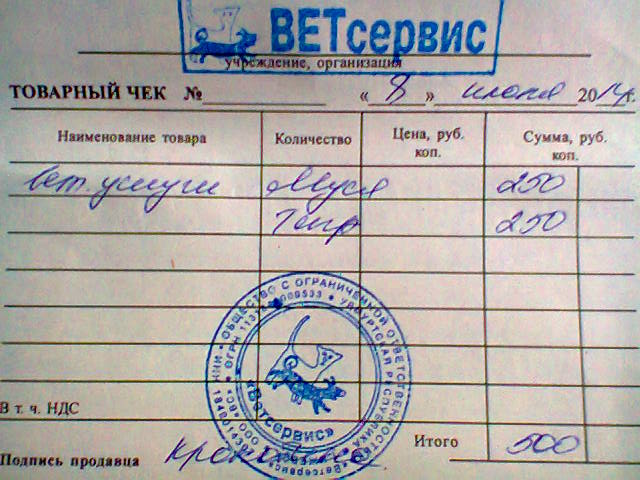 ВЕТсервис
учреждение, организация
ТОВАРНЫЙ ЧЕК № « 8 » июля 2014г.
Наименование товара Количество Цена, руб. коп. Сумма, руб. коп.
вет. услуги Муся 250
Тигр 250
ОБЩЕСТВО С ОГРАНИЧЕННОЙ ОТВЕТСТВЕННОСТЬЮ
УДМУРТСКАЯ РЕСПУБЛИКА
«Ветсервис»
В т. ч. НДС
Итого 500
Подпись продавца